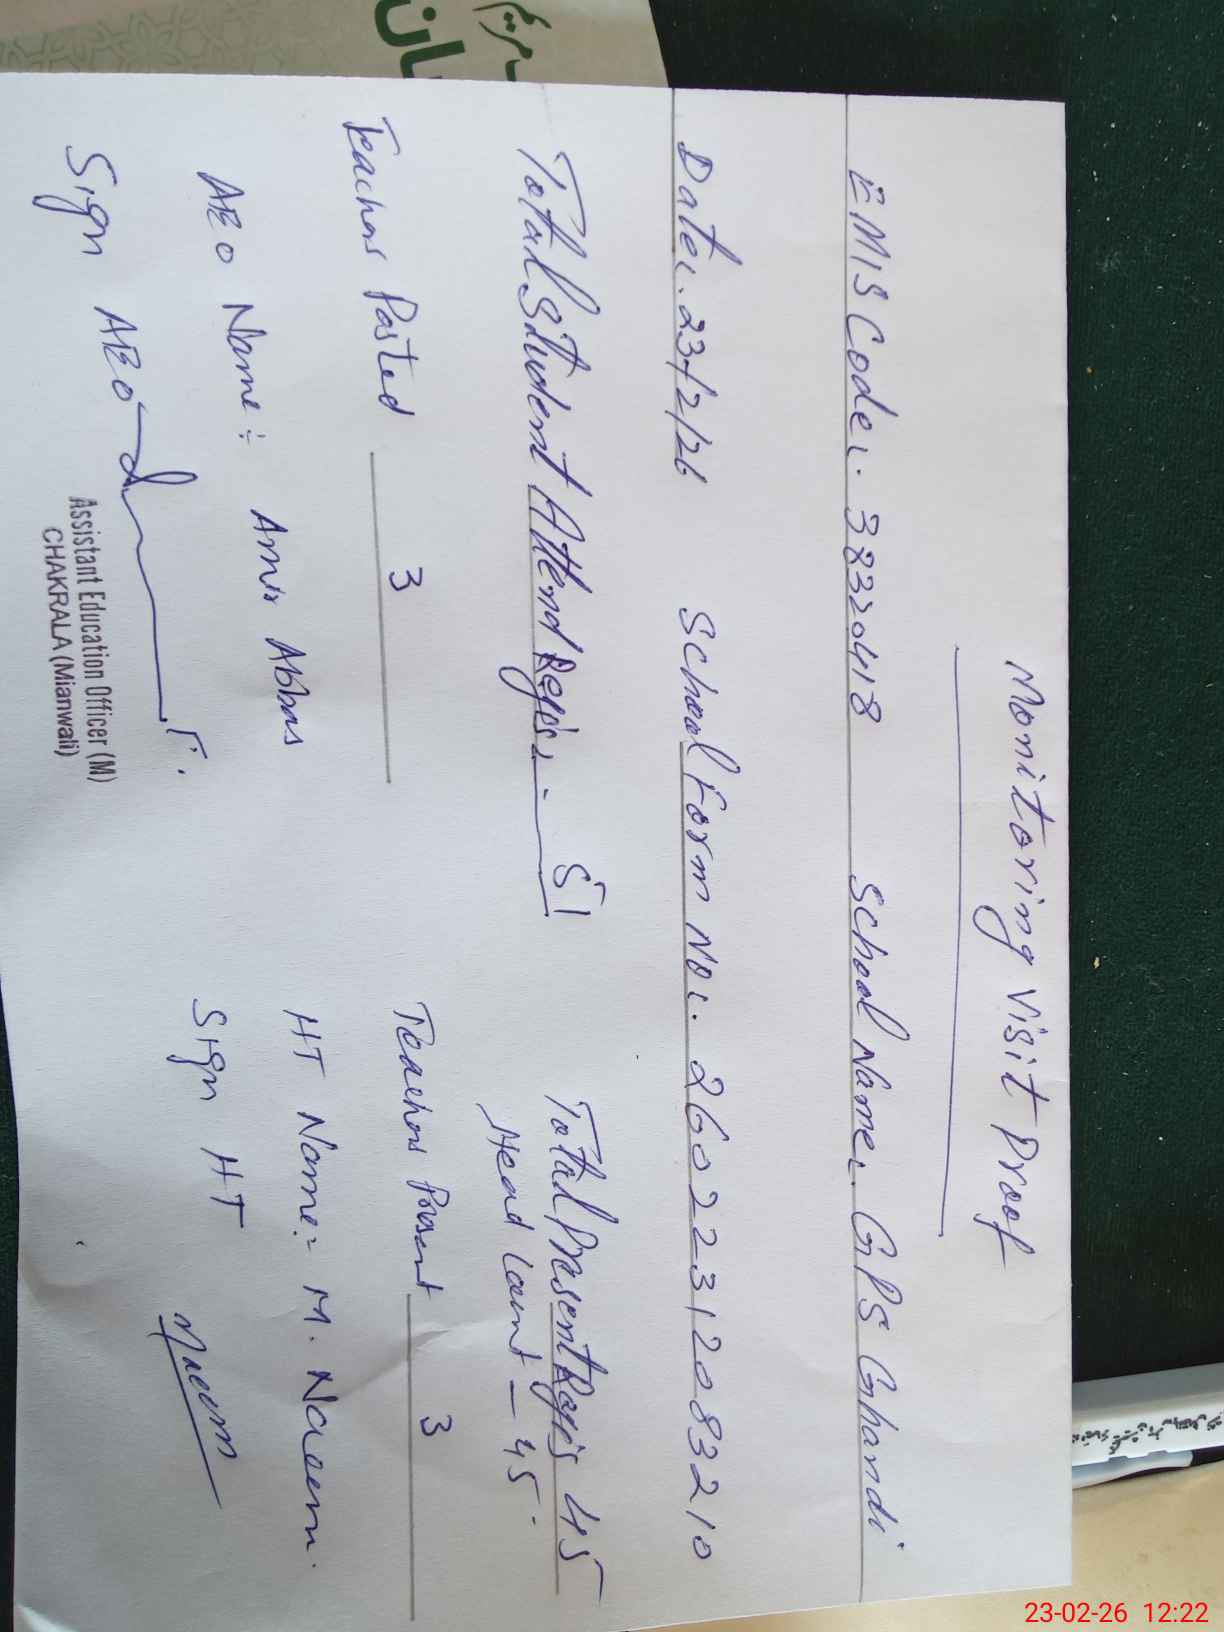 Monitoring Visit Proof
EMIS Code:. 38320418 School Name:. GPS Ghandi
Date:. 23/2/26 School Form No:. 26022312083210
Total Student Attend Regis:- 51 Total Present Regis 45
Head Count – 45.
Teachers Posted 3 Teachers Present 3
AEO Name:- Amir Abbas HT Name:- M. Naeem.
Sign AEO Sign HT Naeem
Assistant Education Officer (M)
CHAKRALA (Mianwali)
23-02-26 12:22